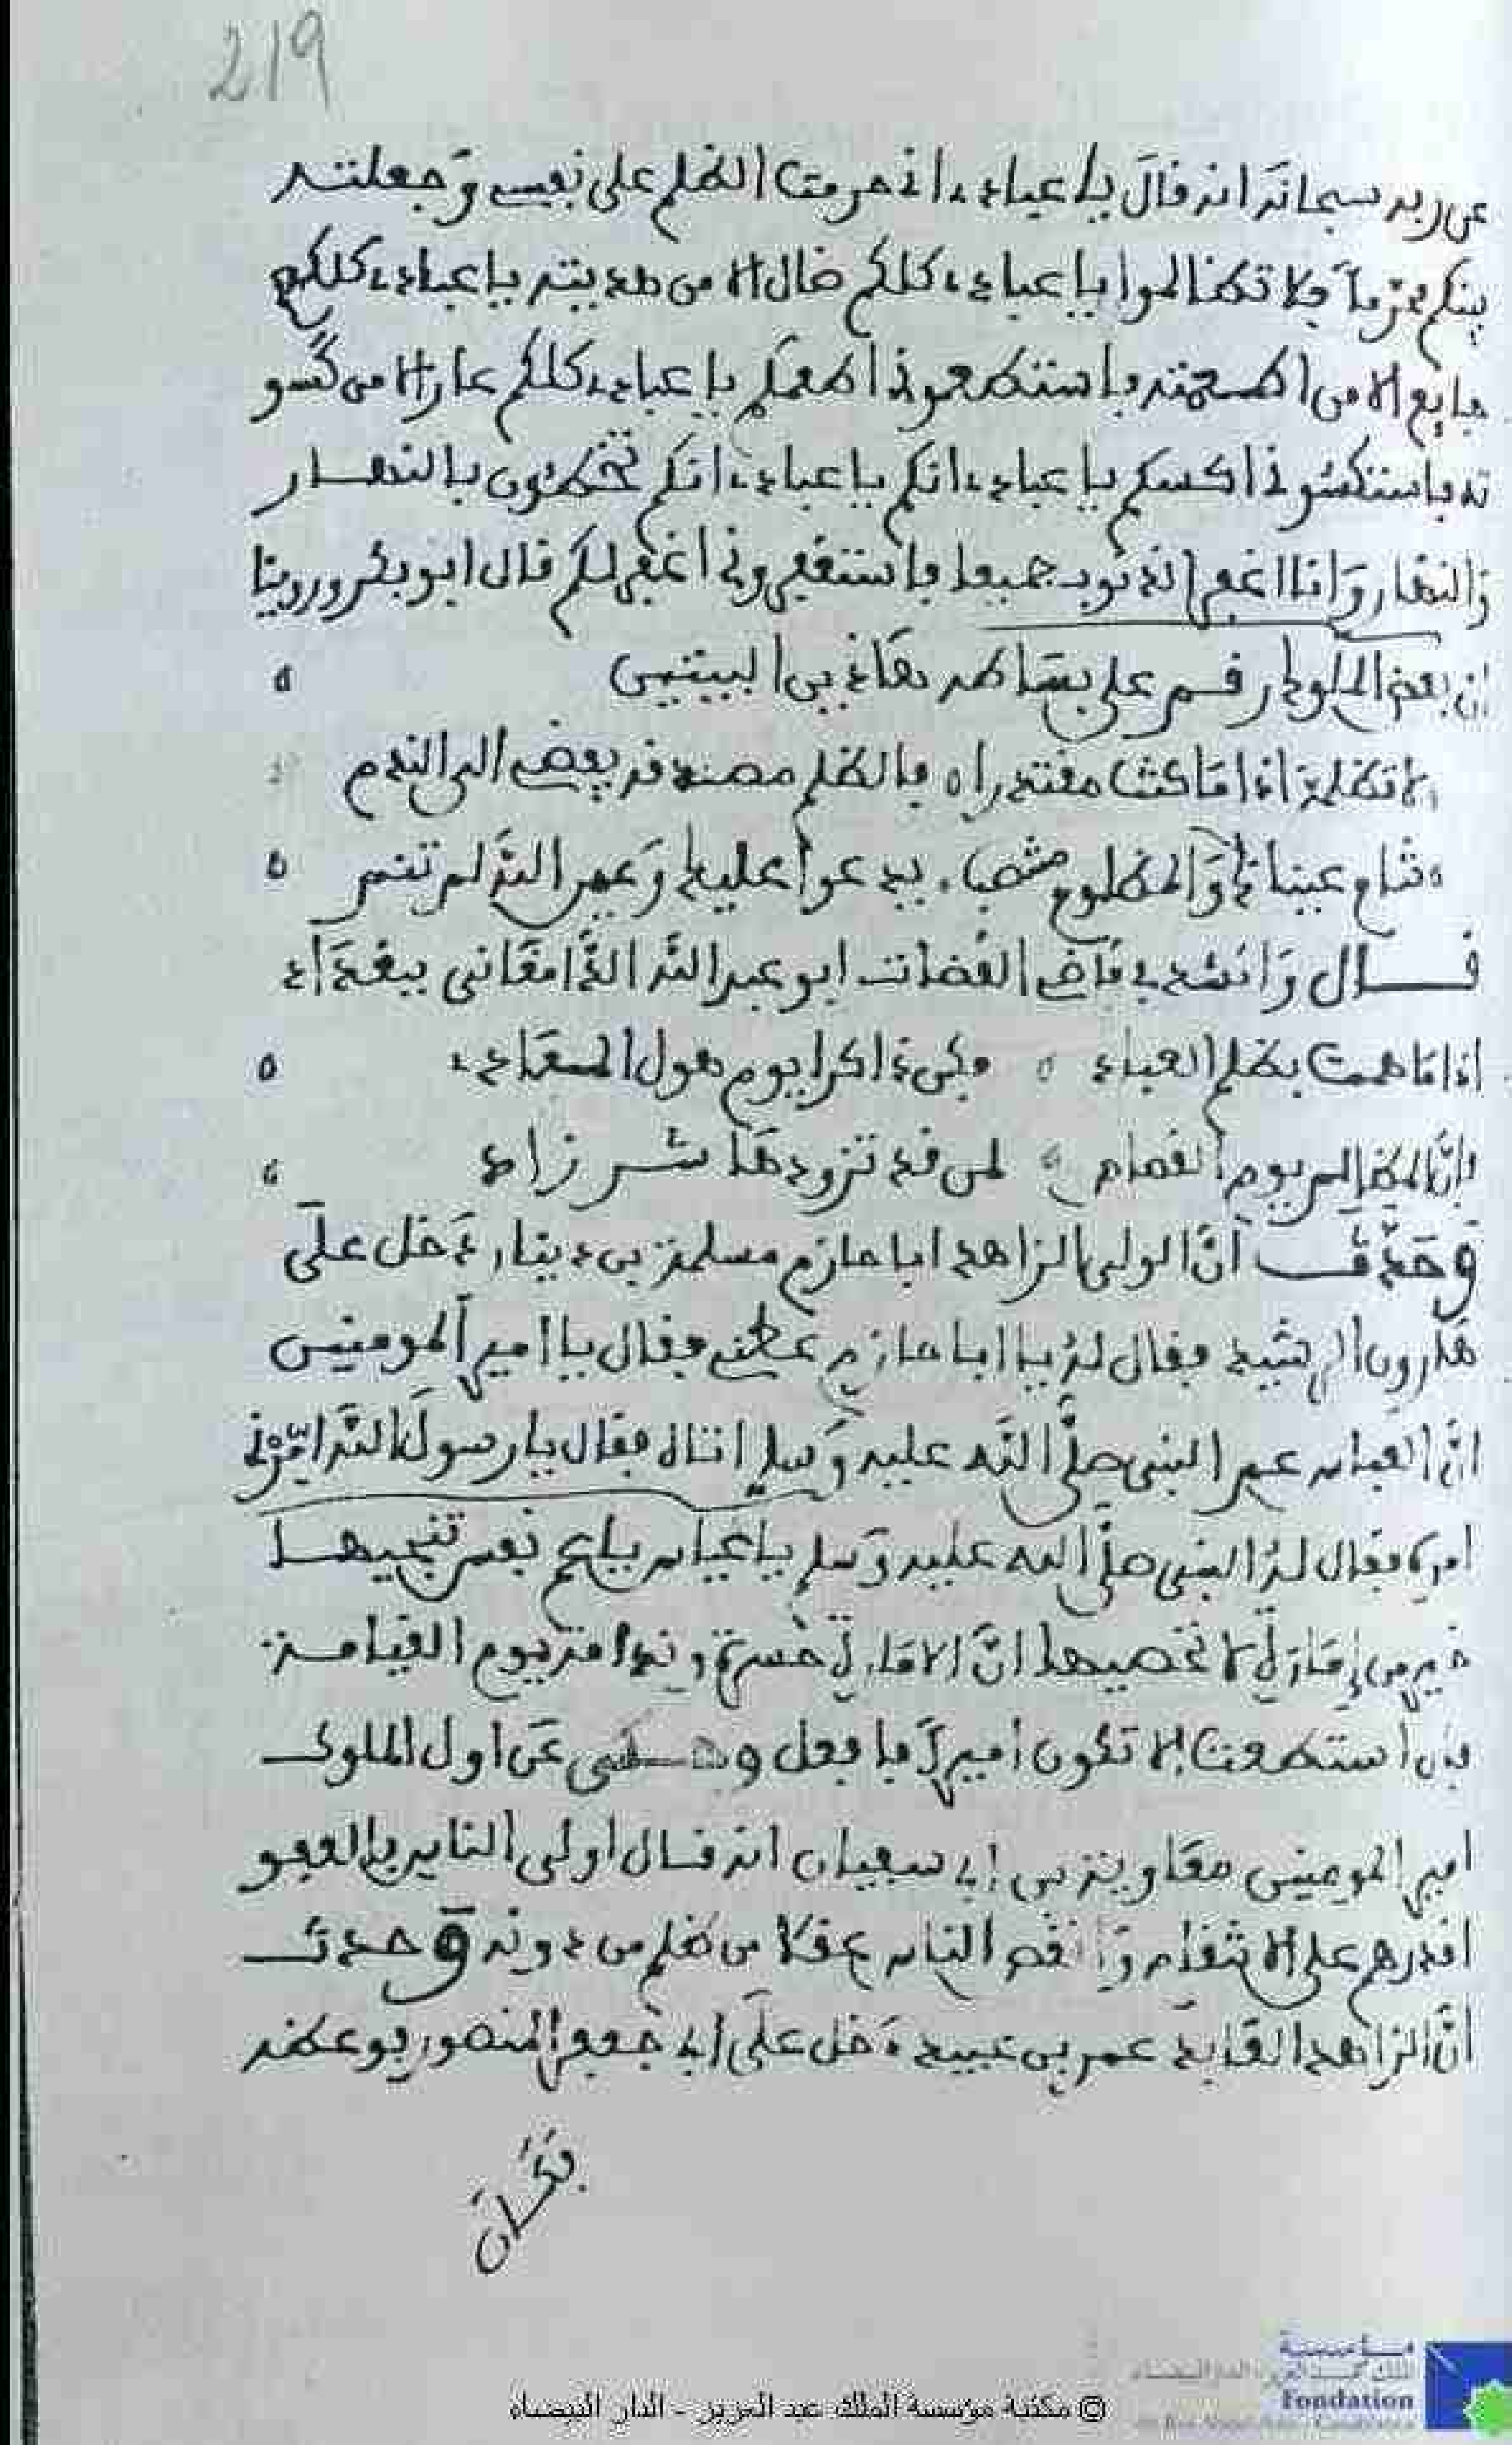 219
عن ربه سبحانه انه قال يا عبادي اني حرمت الظلم على نفسي وجعلته
بينكم محرما فلا تظالموا يا عبادي كلكم ضال الا من هديته يا عبادي كلكم
جايع الا من اطعمته فاستطعموني اطعمكم يا عبادي كلكم عار الا من كسو
ته فاستكسوني اكسكم يا عبادي انكم يا عبادي انكم تخطئون بالنهار
والنهار وانا اغفر الذنوب جميعا فاستغفروني اغفر لكم قال ابو بكر وروينا
ان بعض الملوك رقم على بساطه هاذين البيتين
لا تظلمن اذا ما كنت مقتدرا فالظلم مصدره يفضي الى الندم
تنام عيناك والمظلوم منتصبا يدعوا عليك وعين الله لم تنم
قال وانشدني قاضي القضات ابو عبد الله الدامغاني ببغداد
اذا ما هممت بظلم العباد فكن ذاكرا يوم هول المعاد
فان المظالم يوم القصاص لمن قد تزودها شر زاد
وحدث ان الولي الزاهد ابا حازم مسلمة بن دينار دخل على
هارون الرشيد فقال له يا ابا حازم عظني فقال يا امير المومنين
ان العباس عم النبي صلى الله عليه وسلم اتاه فقال يا رسول الله امرني
امرة فقال له النبي صلى الله عليه وسلم يا عباس يا عم نفس تنجيها
خير من إمارة لا تحصيها ان الامارة حسرة وندامة يوم القيامة
فان استطعت الا تكون اميرا فافعل وحكي عن اول الملوك
امير المومنين معاوية بن ابي سفيان انه قال اولى الناس بالعفو
اقدرهم على الانتقام وانقص الناس عقلا من ظلم من دونه وحدث
ان الزاهد العابد عمر بن عبيد دخل على ابي جعفر المنصور فوعظه
فكان
© مكتبة مؤسسة الملك عبد العزيز - الدار البيضاء
مؤسسة
Fondation